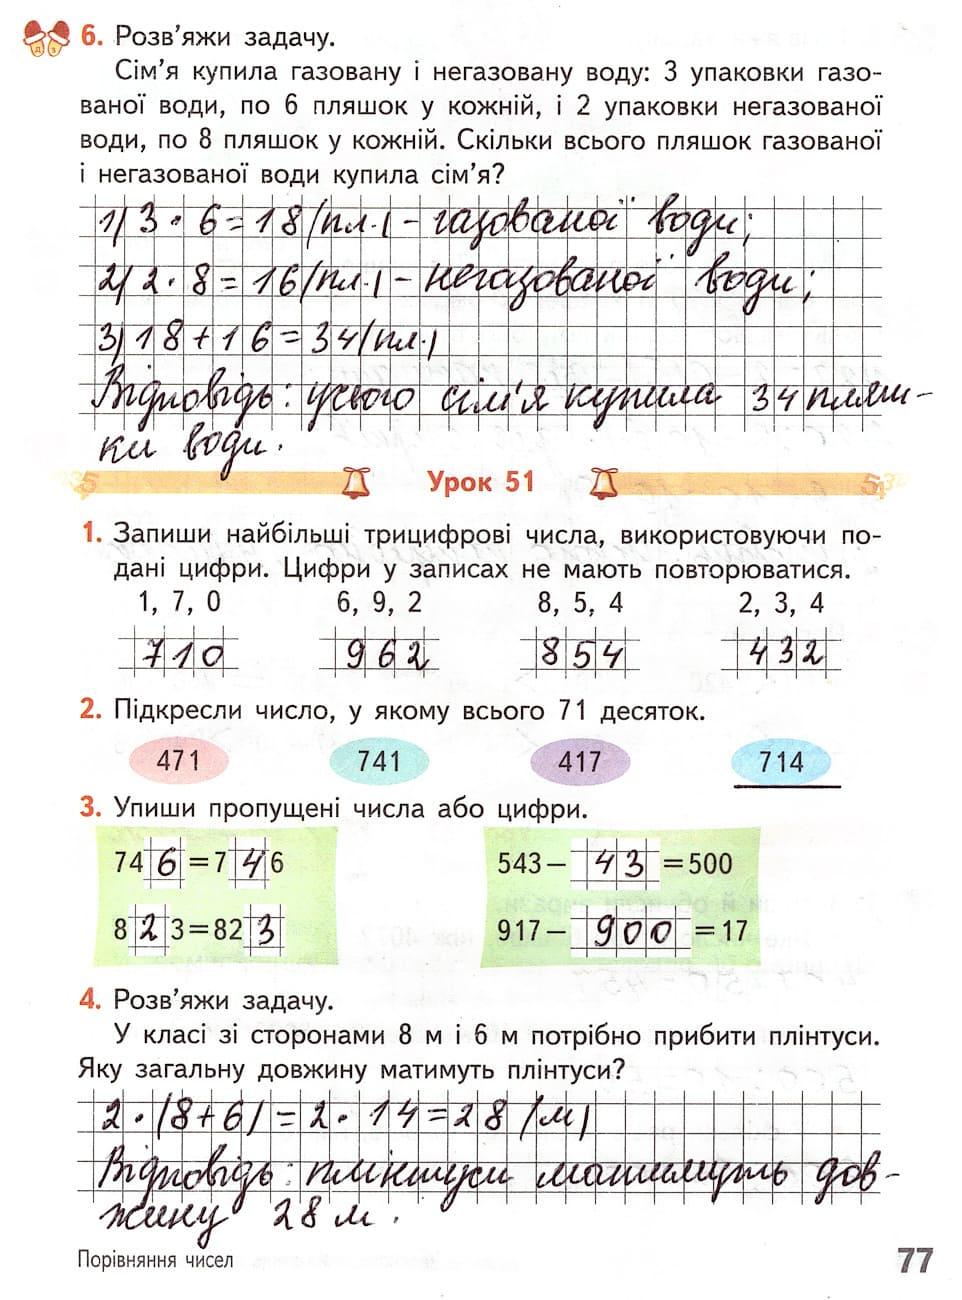 6. Розв'яжи задачу.
Сім'я купила газовану і негазовану воду: 3 упаковки газо-
ваної води, по 6 пляшок у кожній, і 2 упаковки негазованої
води, по 8 пляшок у кожній. Скільки всього пляшок газованої
і негазованої води купила сім'я?
1) 3 · 6 = 18 (пл.) – газованої води;
2) 2 · 8 = 16 (пл.) – негазованої води;
3) 18 + 16 = 34 (пл.)
Відповідь: усього сім'я купила 34 пляш-
ки води.
Урок 51
1. Запиши найбільші трицифрові числа, використовуючи по-
дані цифри. Цифри у записах не мають повторюватися.
1, 7, 0 6, 9, 2 8, 5, 4 2, 3, 4
710 962 854 432
2. Підкресли число, у якому всього 71 десяток.
471 741 417 714
3. Упиши пропущені числа або цифри.
74 6 = 7 4 6 543 – 43 = 500
8 2 3 = 82 3 917 – 900 = 17
4. Розв'яжи задачу.
У класі зі сторонами 8 м і 6 м потрібно прибити плінтуси.
Яку загальну довжину матимуть плінтуси?
2 · (8 + 6) = 2 · 14 = 28 (м)
Відповідь: плінтуси матимуть дов-
жину 28 м.
Порівняння чисел 77